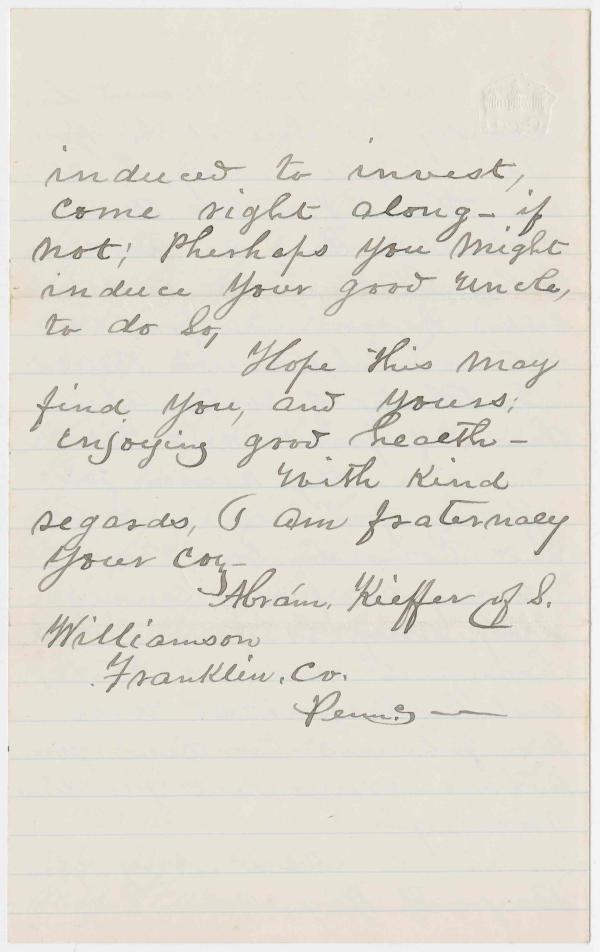 induced to invest,
come right along - if
not; Pherhaps you might
induce your good Uncle,
to do So,
Hope this may
find you, and yours;
enjoying good health -
With Kind
regards, I am fraternaly
your coz -
Abram. Kieffer of S.
Williamson
Franklin. Co.
Penna